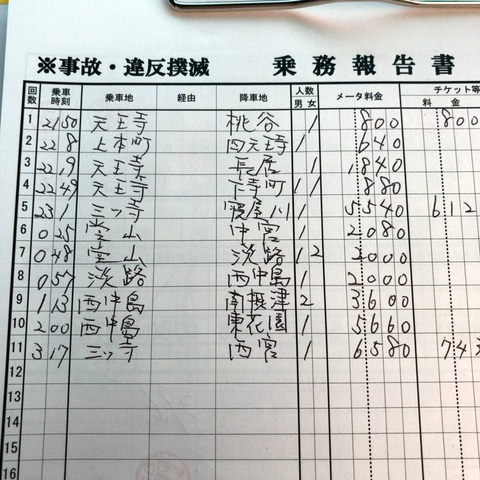 ※事故・違反撲滅 乗務報告書
回数 乗車時刻 乗車地 経由 降車地 人数 男 女 メータ料金 チケット等 料金
1 2150 天王寺 桃谷 1 800 800
2 22 8 上本町 四天王寺 1 640
3 22 9 天王寺 長居 1 1840
4 22 49 天王寺 下寺町 1 1 880
5 23 1 三ッ寺 寝屋川 1 5540 612
6 0 25 堂山 中宮 1 2080
7 0 48 堂山 淡路 1 2 3000
8 0 57 淡路 西中島 1 2000
9 1 13 西中島 南摂津 2 3600
10 2 00 西中島 東花園 1 5660
11 3 17 三ッ寺 西宮 1 6580 743
12
13
14
15
16